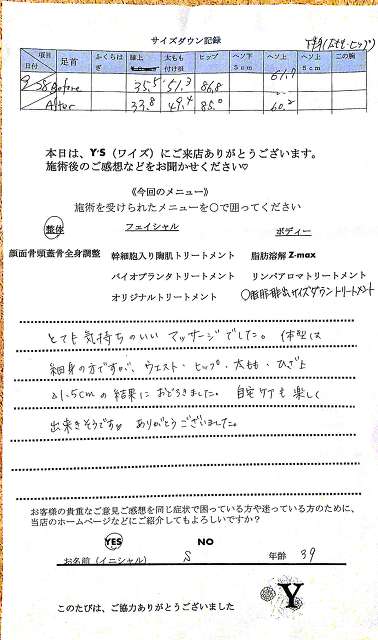 サイズダウン記録
下半身(太もも・ヒップ)
項目 日付 足首 ふくらはぎ 膝上 太もも付け根 ヒップ ヘソ下5cm ヘソ上 ヘソ上5cm 二の腕
Before 35.5 51.3 86.8 61.7
After 33.8 49.4 85.0 60.2
本日は、Y'S(ワイズ)にご来店ありがとうございます。
施術後のご感想などをお聞かせください♡
《今回のメニュー》
施術を受けられたメニューを○で囲ってください
整体 フェイシャル ボディー
顔面骨頭蓋骨全身調整 幹細胞入り陶肌トリートメント 脂肪溶解 Z-max
バイオプランタトリートメント リンパアロマトリートメント
オリジナルトリートメント ○脂肪排出サイズダウントリートメント
とても気持ちのいいマッサージでした。体型は
細身の方ですが、ウエスト・ヒップ・太もも・ひざ上
1.5cmの結果におどろきました。自宅ケアも楽しく
出来そうです♡ ありがとうございました。
お客様の貴重なご意見ご感想を同じ症状で困っている方や迷っている方のために、
当店のホームページなどにご紹介してもよろしいですか?
YES NO
お名前(イニシャル) S 年齢 39
このたびは、ご協力ありがとうございました Y